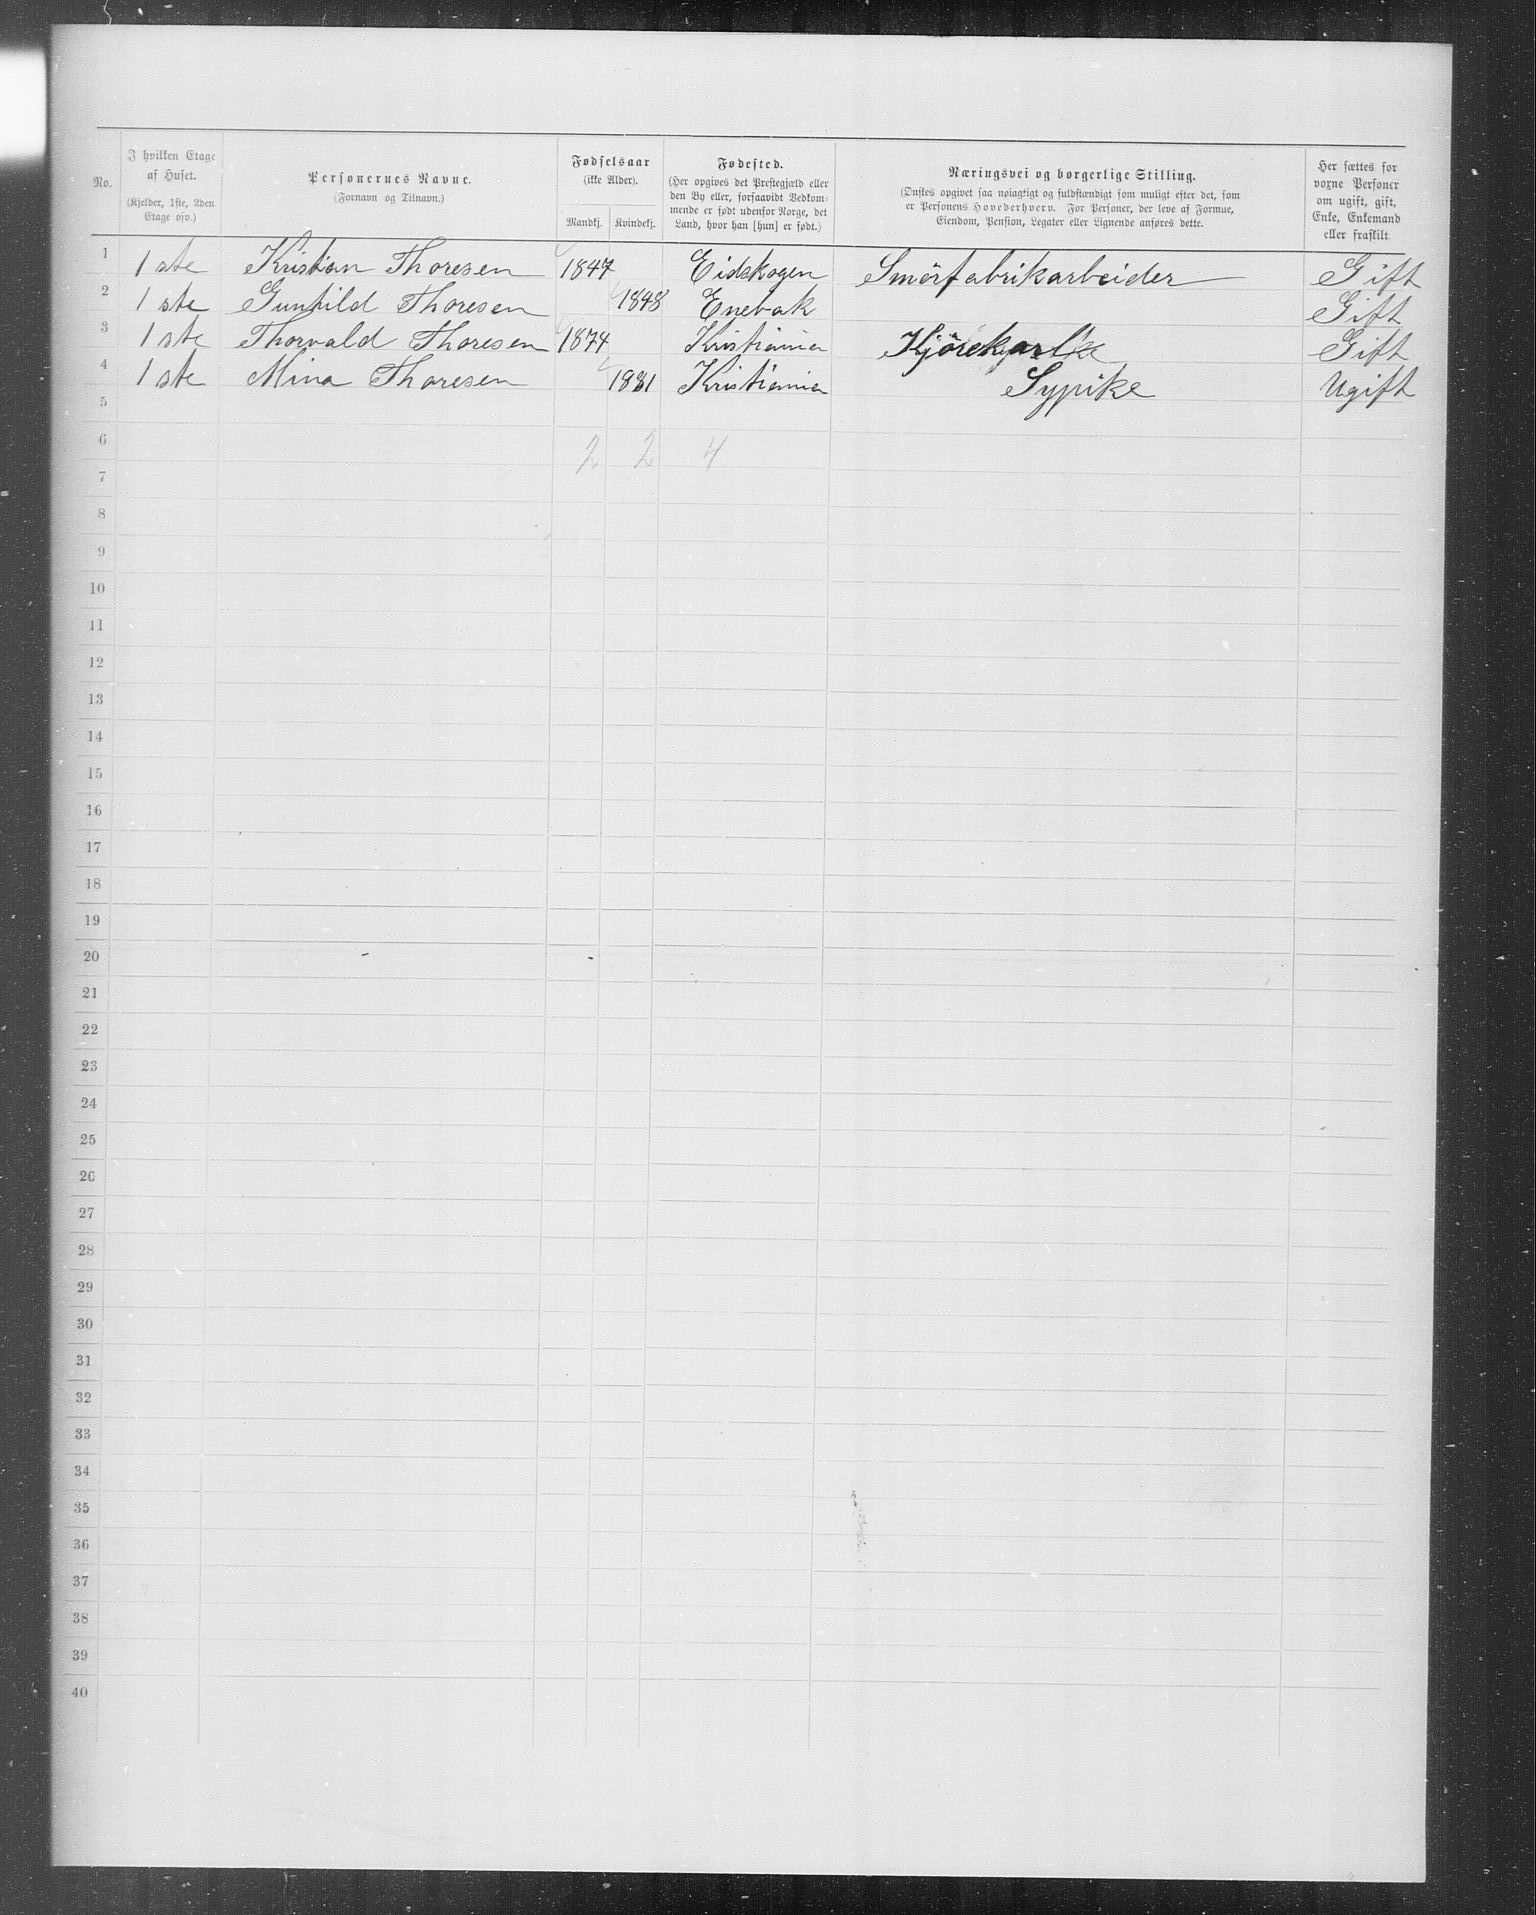 No. | I hvilken Etage af Huset. (Kjelder, 1ste, 2den Etage osv.) | Personernes Navne. (Fornavn og Tilnavn.) | Fødselsaar (ikke Alder). Mandkj. | Kvindekj. | Fødested. (Her opgives det Prestegjæld eller den By eller, forsaavidt Vedkommende er født udenfor Norge, det Land, hvor han [hun] er født.) | Næringsvei og borgerlige Stilling. (Ønskes opgivet saa nøiagtigt og fuldstændigt som muligt efter det, som er Personens Hovederhverv. For Personer, der leve af Formue, Eiendom, Pension, Legater eller Lignende anføres dette. | Her sættes for voxne Personer om ugift, gift, Enke, Enkemand eller fraskilt
1 | 1 ste | Kristian Thoresen | 1847 | | Eidskogen | Smörfabrikarbeider | Gift
2 | 1 ste | Gunhild Thoresen | | 1848 | Enebak | | Gift
3 | 1 ste | Thorvald Thoresen | 1874 | | Kristiania | | Gift
4 | 1 ste | Mina Thoresen | | 1881 | Kristiania | Sypike | Ugift
5
6 | | | 2 | 2 | 4
7
8
9
10
11
12
13
14
15
16
17
18
19
20
21
22
23
24
25
26
27
28
29
30
31
32
33
34
35
36
37
38
39
40